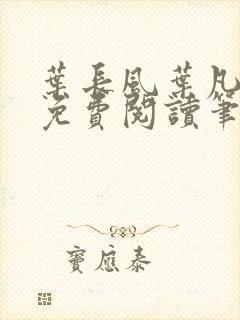 葉長風葉凡
免費閱讀筆
竇應泰